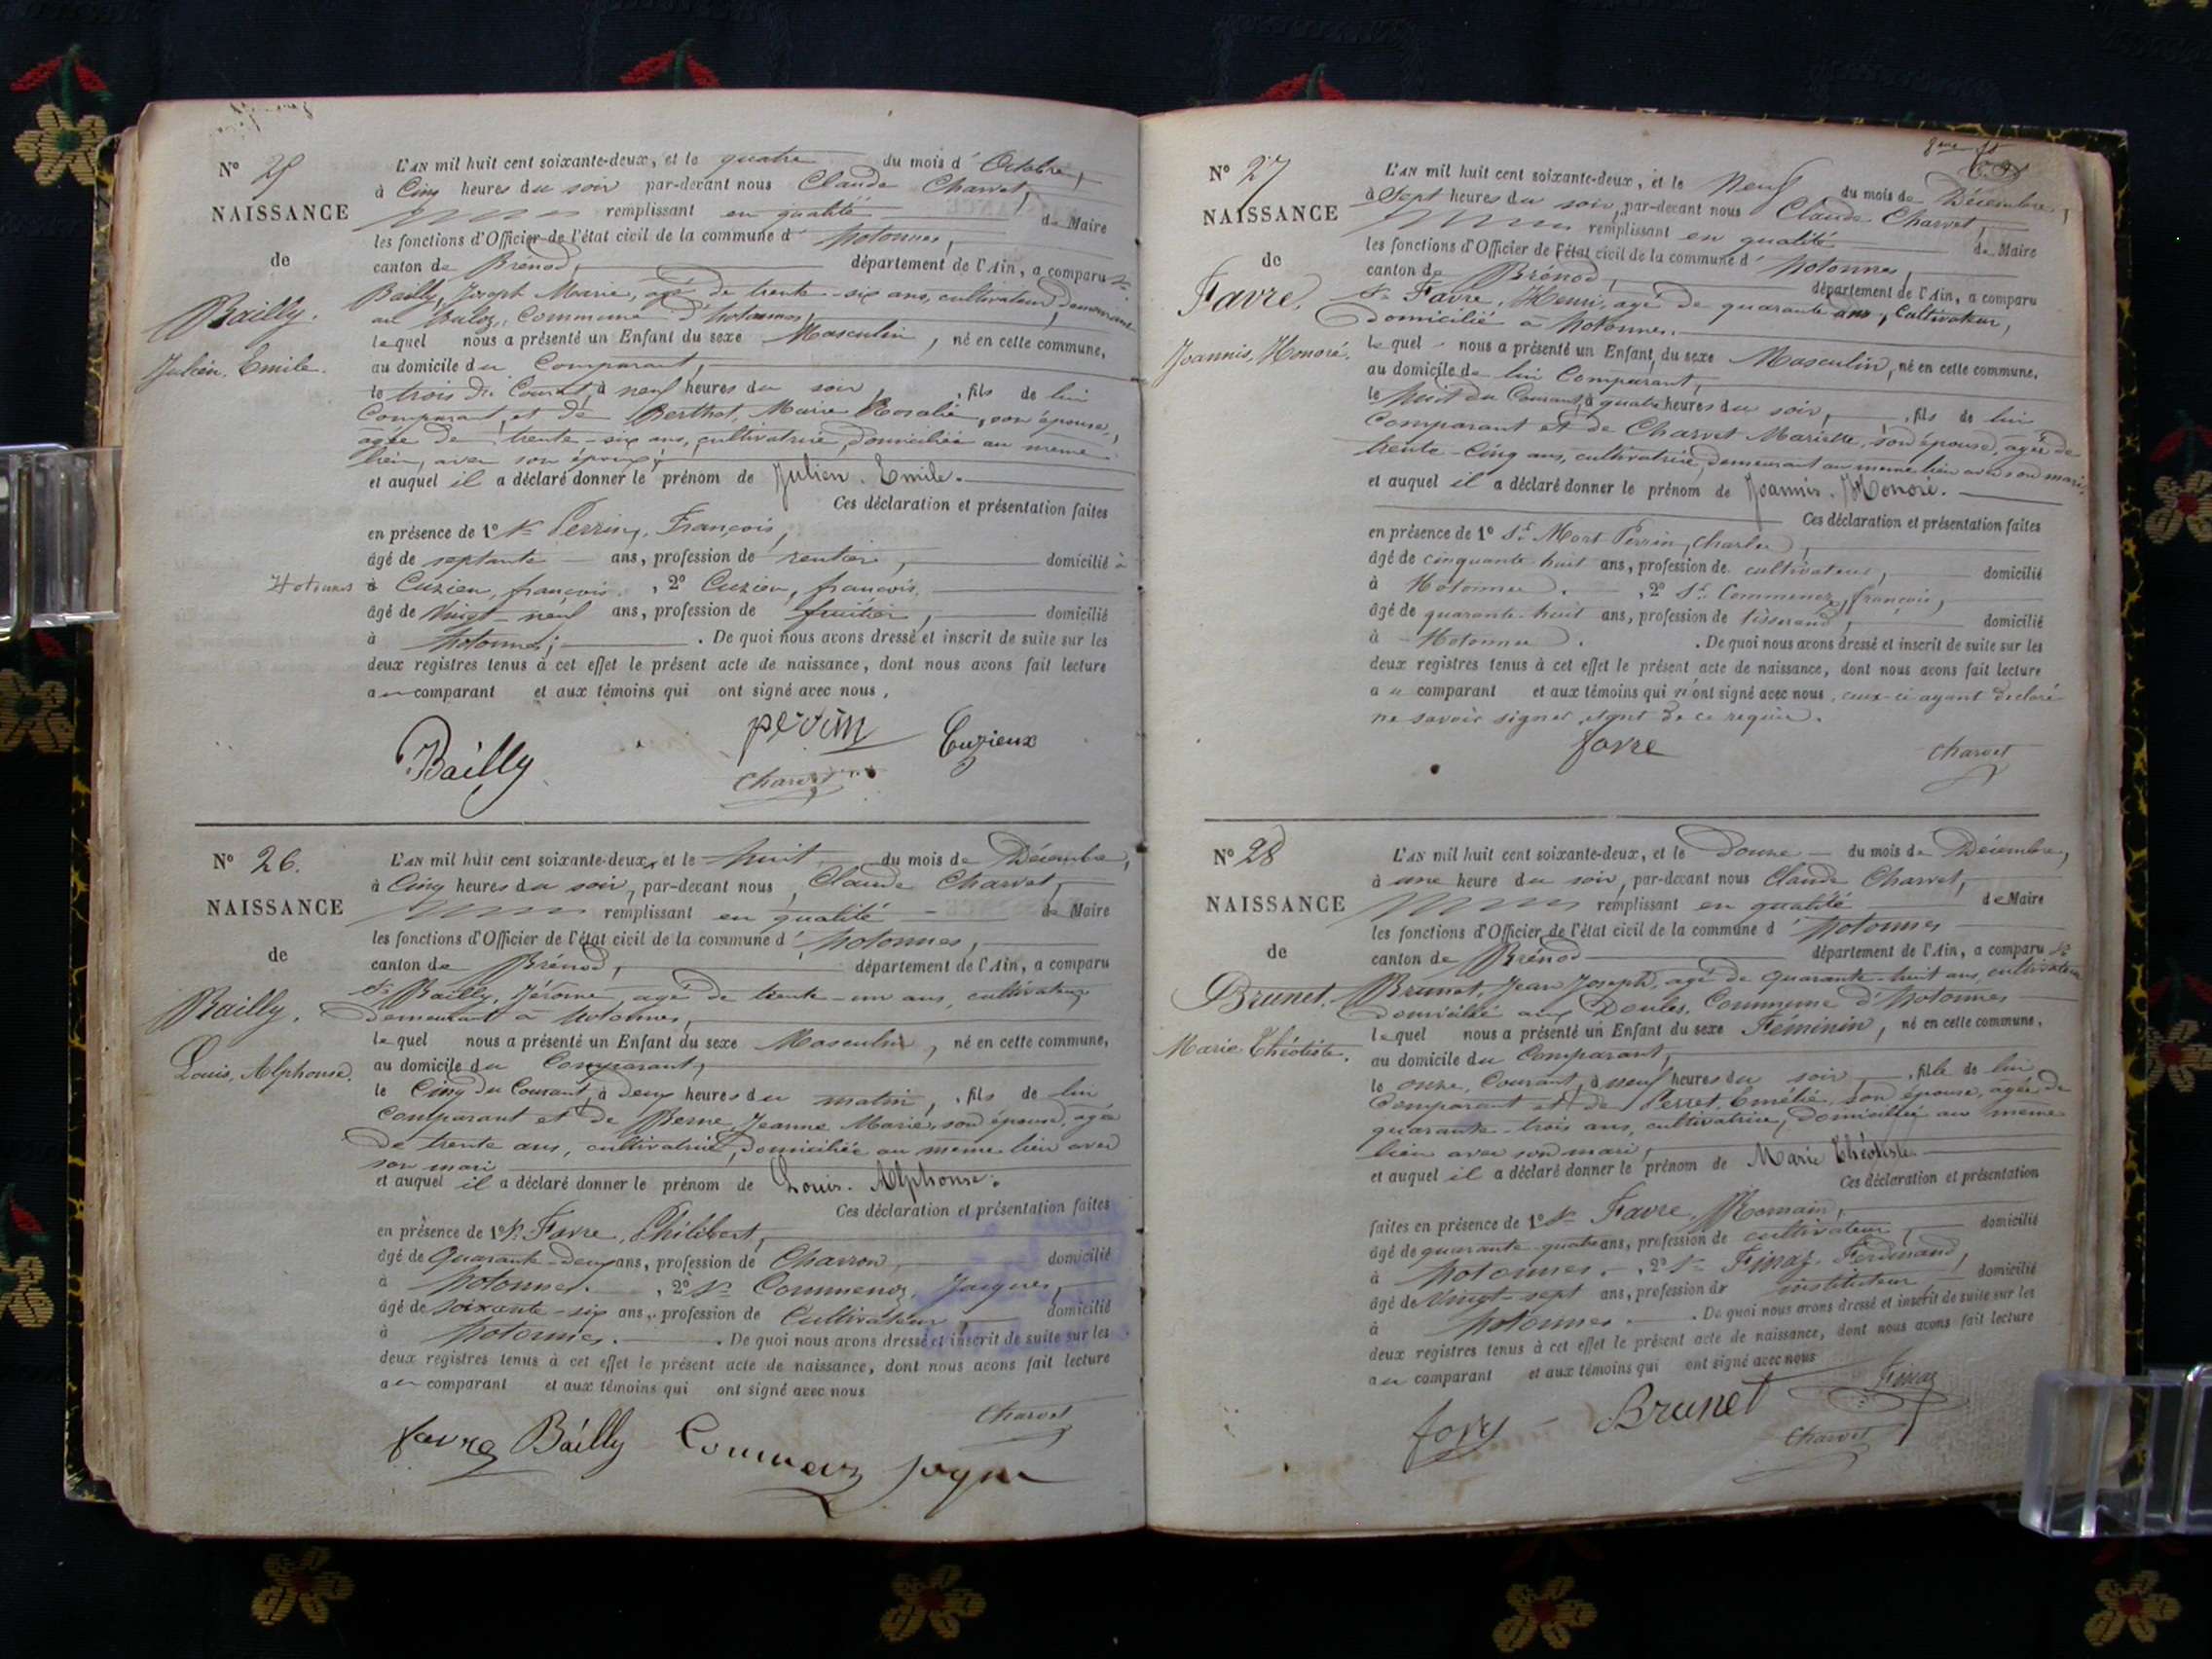 N° 25
NAISSANCE
de
Bailly.
Julien, Emile.
L'AN mil huit cent soixante-deux, et le quatre du mois d'Octobre,
à Cinq heures du soir par-devant nous Claude Charvet,
remplissant en qualité de Maire
les fonctions d'Officier de l'état civil de la commune d'hotonnes,
canton de Brénod, département de l'Ain, a comparu Sr.
Bailly, Joseph Marie, agé de trente-six ans, cultivateur, demeurant
au, Commune d'hotonnes,
lequel nous a présenté un Enfant du sexe Masculin, né en cette commune,
au domicile du Comparant,
le trois du Courant, à neuf heures du soir, fils de lui
Comparant, et de Berthet, Marie Rosalie, son épouse,
agée de trente-six ans, cultivatrice, domiciliée au même
lieu, avec son époux;
et auquel il a déclaré donner le prénom de Julien. Emile.
Ces déclaration et présentation faites
en présence de 1° Sr Perrin, François,
âgé de septante ans, profession de rentier, domicilié à
Hotonnes à Cuzieu, françois. , 2° Cuzieu, françois,
âgé de Vingt-neuf ans, profession de fruitier, domicilié
à hotonnes; . De quoi nous avons dressé et inscrit de suite sur les
deux registres tenus à cet effet le présent acte de naissance, dont nous avons fait lecture
au comparant et aux témoins qui ont signé avec nous,
Bailly perrin Cuzieux
Charvet
N° 26.
NAISSANCE
de
Bailly.
Louis, Alphonse.
L'AN mil huit cent soixante-deux, et le huit du mois de Décembre,
à Cinq heures du soir, par-devant nous, Claude Charvet,
remplissant en qualité de Maire
les fonctions d'Officier de l'état civil de la commune d'hotonnes,
canton de Brénod, département de l'Ain, a comparu
Sr Bailly, Jérôme, agé de trente-un ans, cultivateur
demeurant à hotonnes,
lequel nous a présenté un Enfant du sexe Masculin, né en cette commune,
au domicile du Comparant,
le Cinq du Courant, à deux heures du matin, fils de lui
Comparant et de Berne, Jeanne Marie, son épouse, agée
de trente ans, cultivatrice, domiciliée au même lieu avec
son mari
et auquel il a déclaré donner le prénom de Louis. Alphonse.
Ces déclaration et présentation faites
en présence de 1° Sr. Favre, Philibert,
âgé de Quarante-deux ans, profession de Charron, domicilié
à hotonnes. , 2° Sr Commenoz, Jacques,
âgé de soixante-six ans, profession de Cultivateur, domicilié
à hotonnes. . De quoi nous avons dressé et inscrit de suite sur les
deux registres tenus à cet effet le présent acte de naissance, dont nous avons fait lecture
au comparant et aux témoins qui ont signé avec nous
Charvet
favre Bailly
N° 27
NAISSANCE
de
Favre.
Joannis, Honoré.
L'AN mil huit cent soixante-deux, et le Neuf du mois de Décembre,
à Sept heures du soir, par-devant nous Claude Charvet,
remplissant en qualité de Maire
les fonctions d'Officier de l'état civil de la commune d'hotonnes,
canton de Brénod, département de l'Ain, a comparu
Sr Favre, Henri, agé de quarante ans, Cultivateur,
Domicilié à hotonnes.
lequel nous a présenté un Enfant du sexe Masculin, né en cette commune,
au domicile de lui Comparant,
le huit du Courant, à quatre heures du soir, fils de lui
Comparant et de Charvet Mariette, son épouse, agée de
trente-Cinq ans, cultivatrice, demeurant au même lieu avec son mari,
et auquel il a déclaré donner le prénom de Joannis. Honoré.
Ces déclaration et présentation faites
en présence de 1° Sr. Mort Perrin, Charles,
âgé de cinquante-huit ans, profession de cultivateur, domicilié
à Hotonnes. , 2° Sr. Commenoz, françois,
âgé de quarante-huit ans, profession de tisserand, domicilié
à Hotonnes. . De quoi nous avons dressé et inscrit de suite sur les
deux registres tenus à cet effet le présent acte de naissance, dont nous avons fait lecture
au comparant et aux témoins qui n'ont signé avec nous, ceux-ci ayant déclaré
ne savoir signer, de ce requis.
favre Charvet
N° 28
NAISSANCE
de
Brunet.
Marie Théotiste.
L'AN mil huit cent soixante-deux, et le Douze du mois de Décembre,
à une heure du soir, par-devant nous Claude Charvet,
remplissant en qualité de Maire
les fonctions d'Officier de l'état civil de la commune d'hotonnes
canton de Brénod département de l'Ain, a comparu Sr
Brunet, Jean Joseph, agé de quarante-huit ans, cultivateur
domicilié aux, Commune d'hotonnes
lequel nous a présenté un Enfant du sexe Féminin, né en cette commune,
au domicile du Comparant,
le onze, Courant, à neuf heures du soir, fille de lui
Comparant et de Perret, Emélie, son épouse, agée de
quarante-trois ans, cultivatrice, domiciliée au même
lieu avec son mari,
et auquel il a déclaré donner le prénom de Marie Théotiste.
Ces déclaration et présentation
faites en présence de 1° Sr Favre, Romain,
âgé de quarante-quatre ans, profession de cultivateur, domicilié
à hotonnes. , 2° Sr Ferdinand,
âgé de Vingt-sept ans, profession de instituteur domicilié
à hotonnes. . De quoi nous avons dressé et inscrit de suite sur les
deux registres tenus à cet effet le présent acte de naissance, dont nous avons fait lecture
au comparant et aux témoins qui ont signé avec nous
Brunet
Charvet